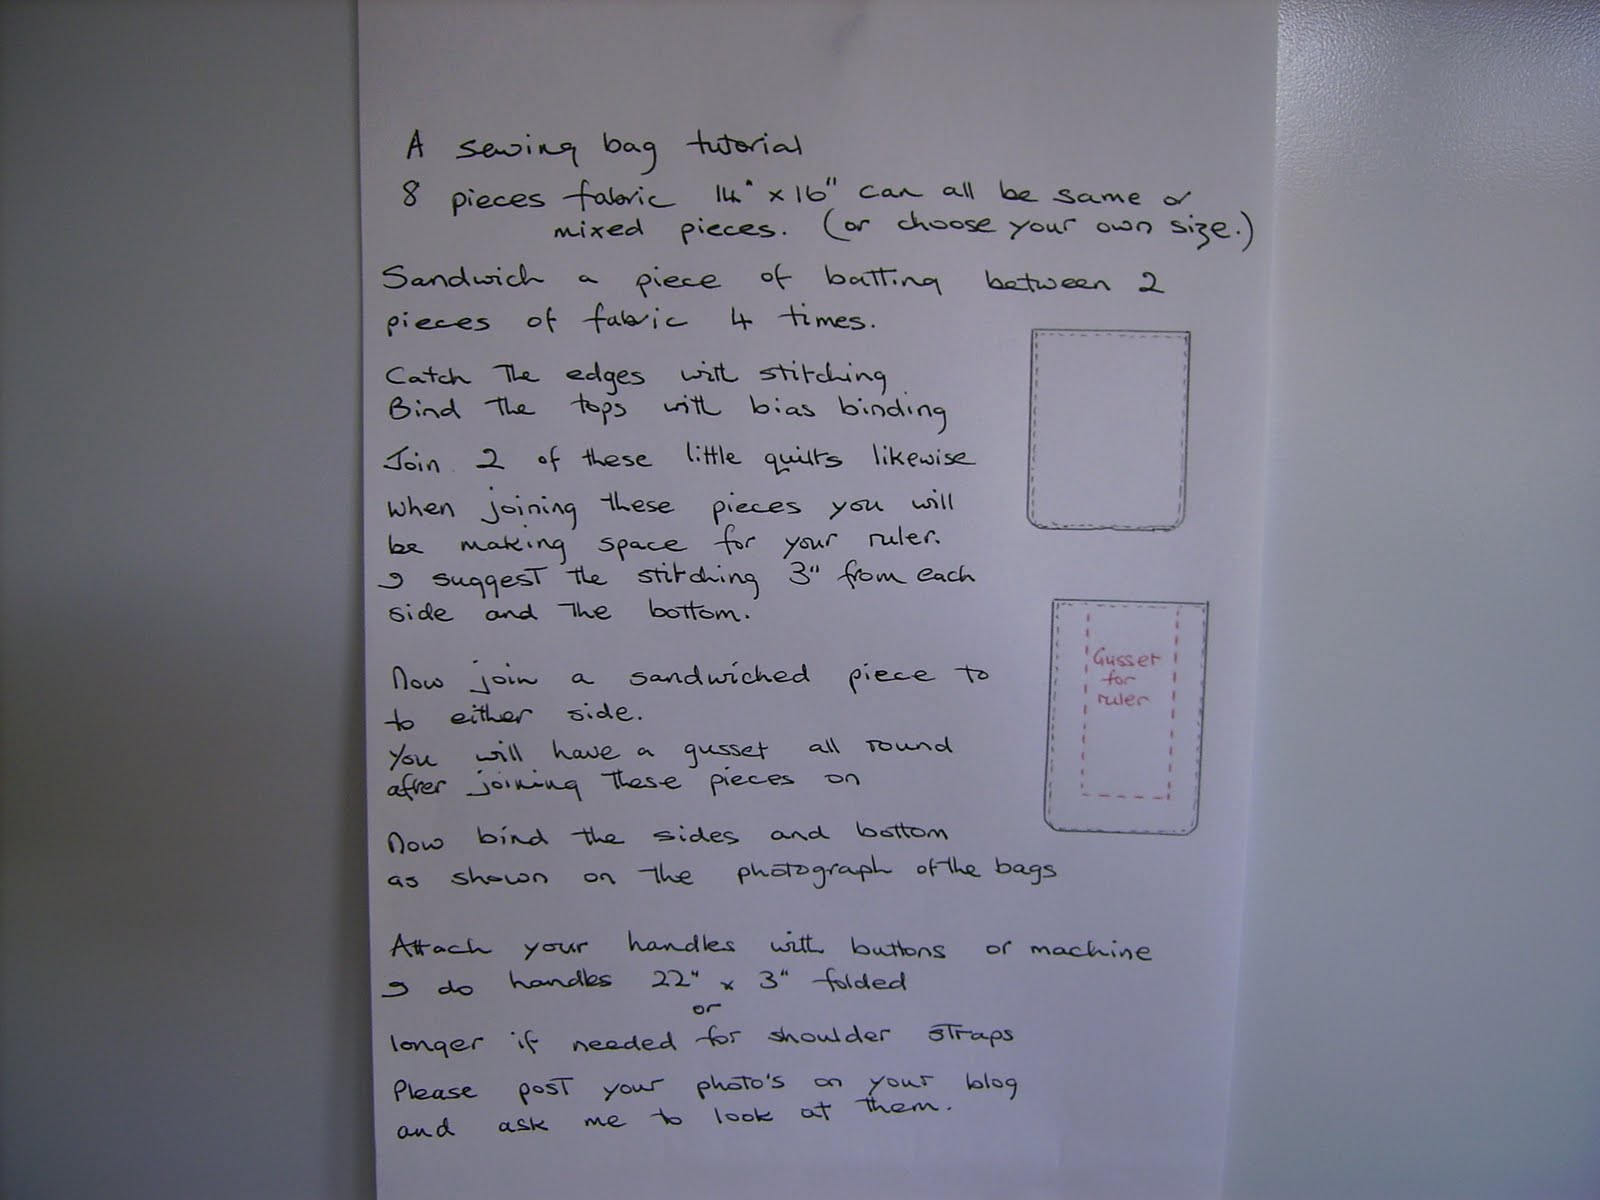 A sewing bag tutorial
8 pieces fabric 14" x 16" can all be same or
mixed pieces. (or choose your own size.)
Sandwich a piece of batting between 2
pieces of fabric 4 times.
Catch the edges with stitching
Bind the tops with bias binding
Join 2 of these little quilts likewise
when joining these pieces you will
be making space for your ruler.
I suggest the stitching 3" from each
side and the bottom.
Gusset
for
ruler
Now join a sandwiched piece to
to either side.
You will have a gusset all round
after joining these pieces on
Now bind the sides and bottom
as shown on the photograph of the bags
Attach your handles with buttons or machine
I do handles 22" x 3" folded
or
longer if needed for shoulder straps
Please post your photo's on your blog
and ask me to look at them.